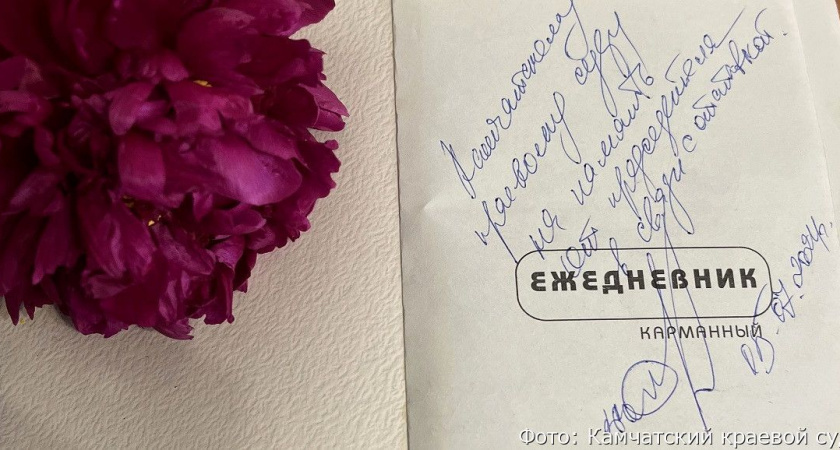 Камчатскому
краевому суду
на память
от председателя
в связи с отставкой.
ЕЖЕДНЕВНИК
КАРМАННЫЙ
07.2024.
Фото: Камчатский краевой су